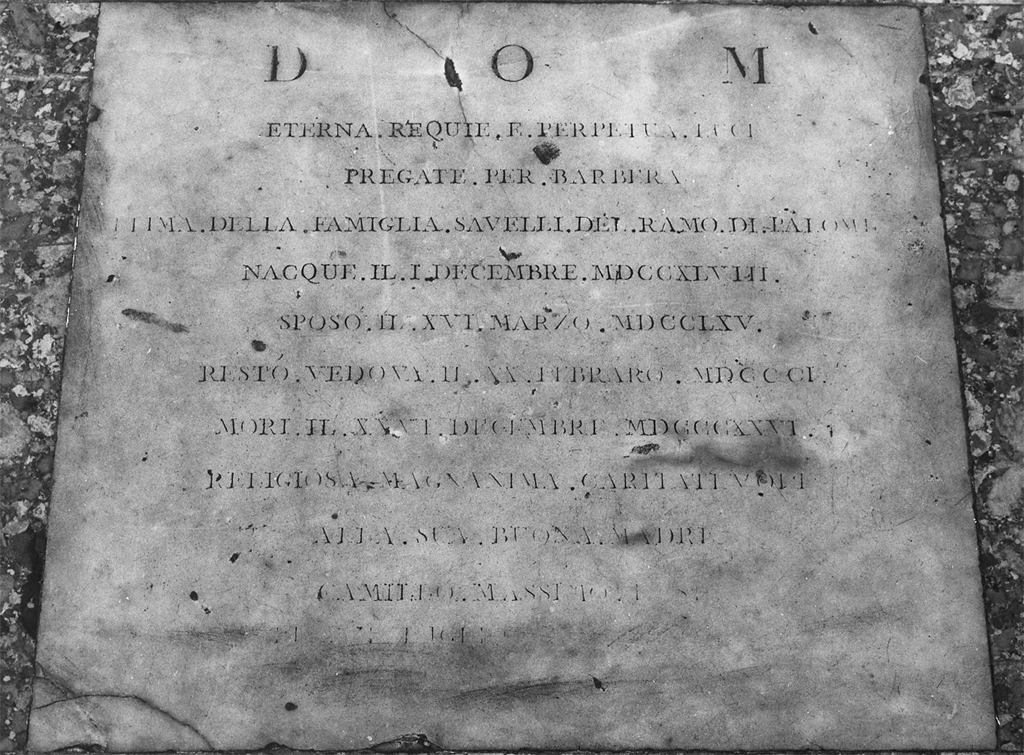 D O M
ETERNA . REQUIE . E . PERPETUA . LUCE
PREGATE . PER . BARBERA
DELLA . FAMIGLIA . SAVELLI . DEL . RAMO . DI .
NACQUE . IL . I . DECEMBRE . MDCCXLVIII .
SPOSÓ . IL . XVI . MARZO . MDCCLXV .
RESTÓ . VEDOVA . IL . XX . FEBRARO . MDCCCI .
MORI . IL . DECEMBRE . MDCCCXXVI .
RELIGIOSA . MAGNANIMA .
ALLA . SUA . BUONA . MADRE
CAMILLO . MASSIMO .